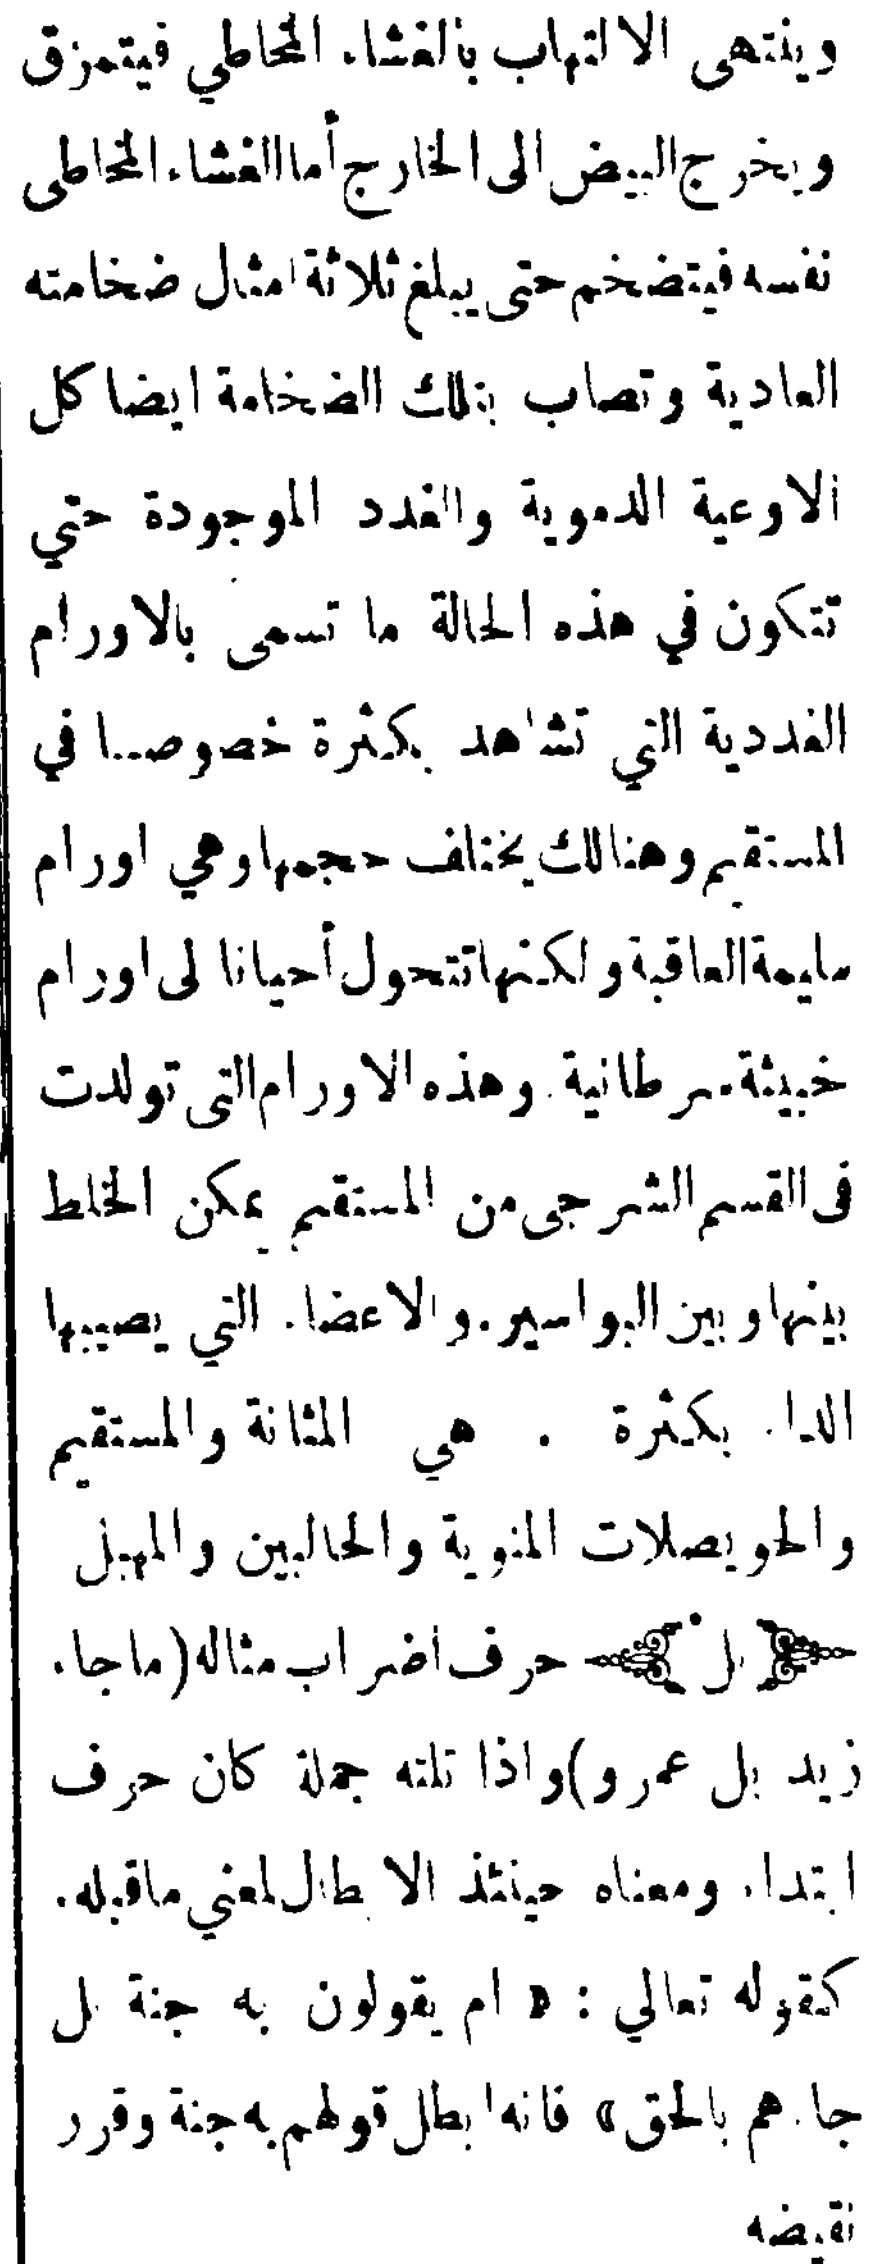 وينتهى الالتهاب بالغشاء المخاطي فيتمزق
ويخرج البيض الى الخارج أما الغشاء المخاطى
نفسه فيتضخم حتى يبلغ ثلاثة امثال ضخامته
العادية وتصاب بتلك الضخامة ايضا كل
الاوعية الدموية والغدد الموجودة حتي
تتكون في هذه الحالة ما تسمى بالاورام
الغددية التي تشاهد بكثرة خصوصا في
المستقيم وهنالك يختلف حجمها وهي اورام
سليمة العاقبة ولكنها تتحول أحيانا لى اورام
خبيثة سرطانية. وهذه الاورام التى تولدت
فى القسم الشرجى من المستقيم يمكن الخلط
بينها وبين البواسير. والاعضاء التي يصيبها
الداء بكثرة . هي المثانة والمستقيم
والحويصلات المنوية والحالبين والمهبل
بلْ حرف اضراب مثاله (ماجاء
زيد بل عمرو) واذا تلته جملة كان حرف
ابتداء ومعناه حينئذ الابطال لمعني ماقبله.
كقوله تعالي : « ام يقولون به جنة بل
جاءهم بالحق » فانه ابطل قولهم به جنة وقرر
نقيضه